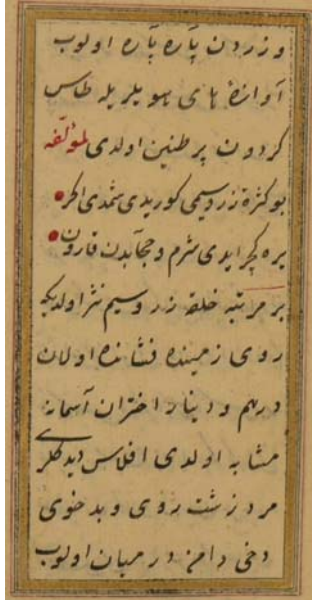 و زردن پاره پاره اولوب
آوازهٔ های هویلریله طاس
کردون پر طنین اولدی لمؤلفه
بو کثرة زر و سیمی کوریدی شمدی اکر
یره کچر ایدی شرم و حجابدن قارون
بر مرتبه خلقه زر و سیم نثر اولندیکه
روی زمینده فشانده اولان
درهم و دینار اختران آسمانه
مشابه اولدی افلاس دیدکلری
مرد زشت روی و بدخوی
دخی دامن در میان اولوب